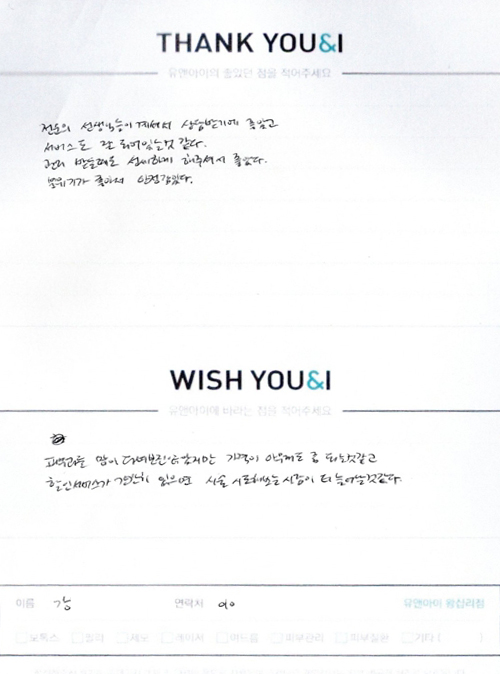 THANK YOU&I
유앤아이의 좋았던 점을 적어주세요
전문의 선생님들이 계셔서 상담받기에 좋았고
서비스도 잘 되어있는것 같다.
관리 받을때도 섬세하게 해주셔서 좋았다.
분위기가 좋아서 안정감있다.
WISH YOU&I
유앤아이에 바라는 점을 적어주세요
피부과를 많이 다녀보진 않았지만 가격이 아무래도 좀 되는것같고
할인서비스가 간간히 있으면 시술 시도하는 사람이 더 늘어날것같다.
이름 강 연락처 010 유앤아이 왕십리점
보톡스 필러 제모 레이저 여드름 피부관리 피부질환 기타 ( )